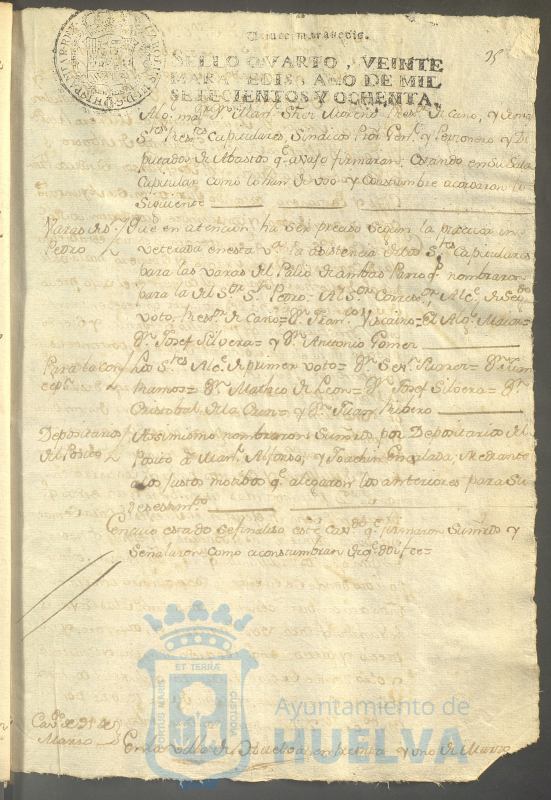 Veinte maravedis.
SELLO QVARTO, VEINTE
MARAVEDIS, AÑO DE MIL
SETECIENTOS Y OCHENTA.
35
Alg. maor Dn Man. Moreno de Cano, y
Capitulares, Sindico Y Personero y Di
putados de Abastos q. avaso firmaran, Estando en Su Sala
Capitular como lo han de uso y Costumbre acordaron lo
Siguiente
Varas de Sn
Pedro
Que en atencion ha Ser presiso segun la practica in
veterada en esta Va. la asistencia de los Sres Capitulares
para las varas del Palio de ambas Parroqs. nombraron
para la del Sor Sn Pedro = Al Sor Corregor, Alce. de Segdo
voto, de Cano = Dn Franco Viscaino = El Alg. Maior =
Dn Josef Silvera = y Dn Antonio Gomez
Para la
Los Sres Alce. de primer voto = Dn = Dn Juan
Ramos = Dn Matheo de Leon = Dn Josef Silvera = Dn
Cristobal de la Cruz = y Dn Juan Rivero
Depositarios
del Posito
Assimismo nombraron Sus mrds por Depositarios del
Posito a Manl. Alfonso, y Joachin Mediante
a los Justos motibos qe. alegaron los anteriores para Su
En cuio estado se finaliso este Cavdo qe firmaron Sus mrds y
Señalaron como acostumbran doi fee =
Cavdo de 31 de
Marzo
En la Villa de Huelva en treinta y uno de Marzo
PORTUS MARIS
ET TERRÆ
CUSTODIA
Ayuntamiento de
HUELVA